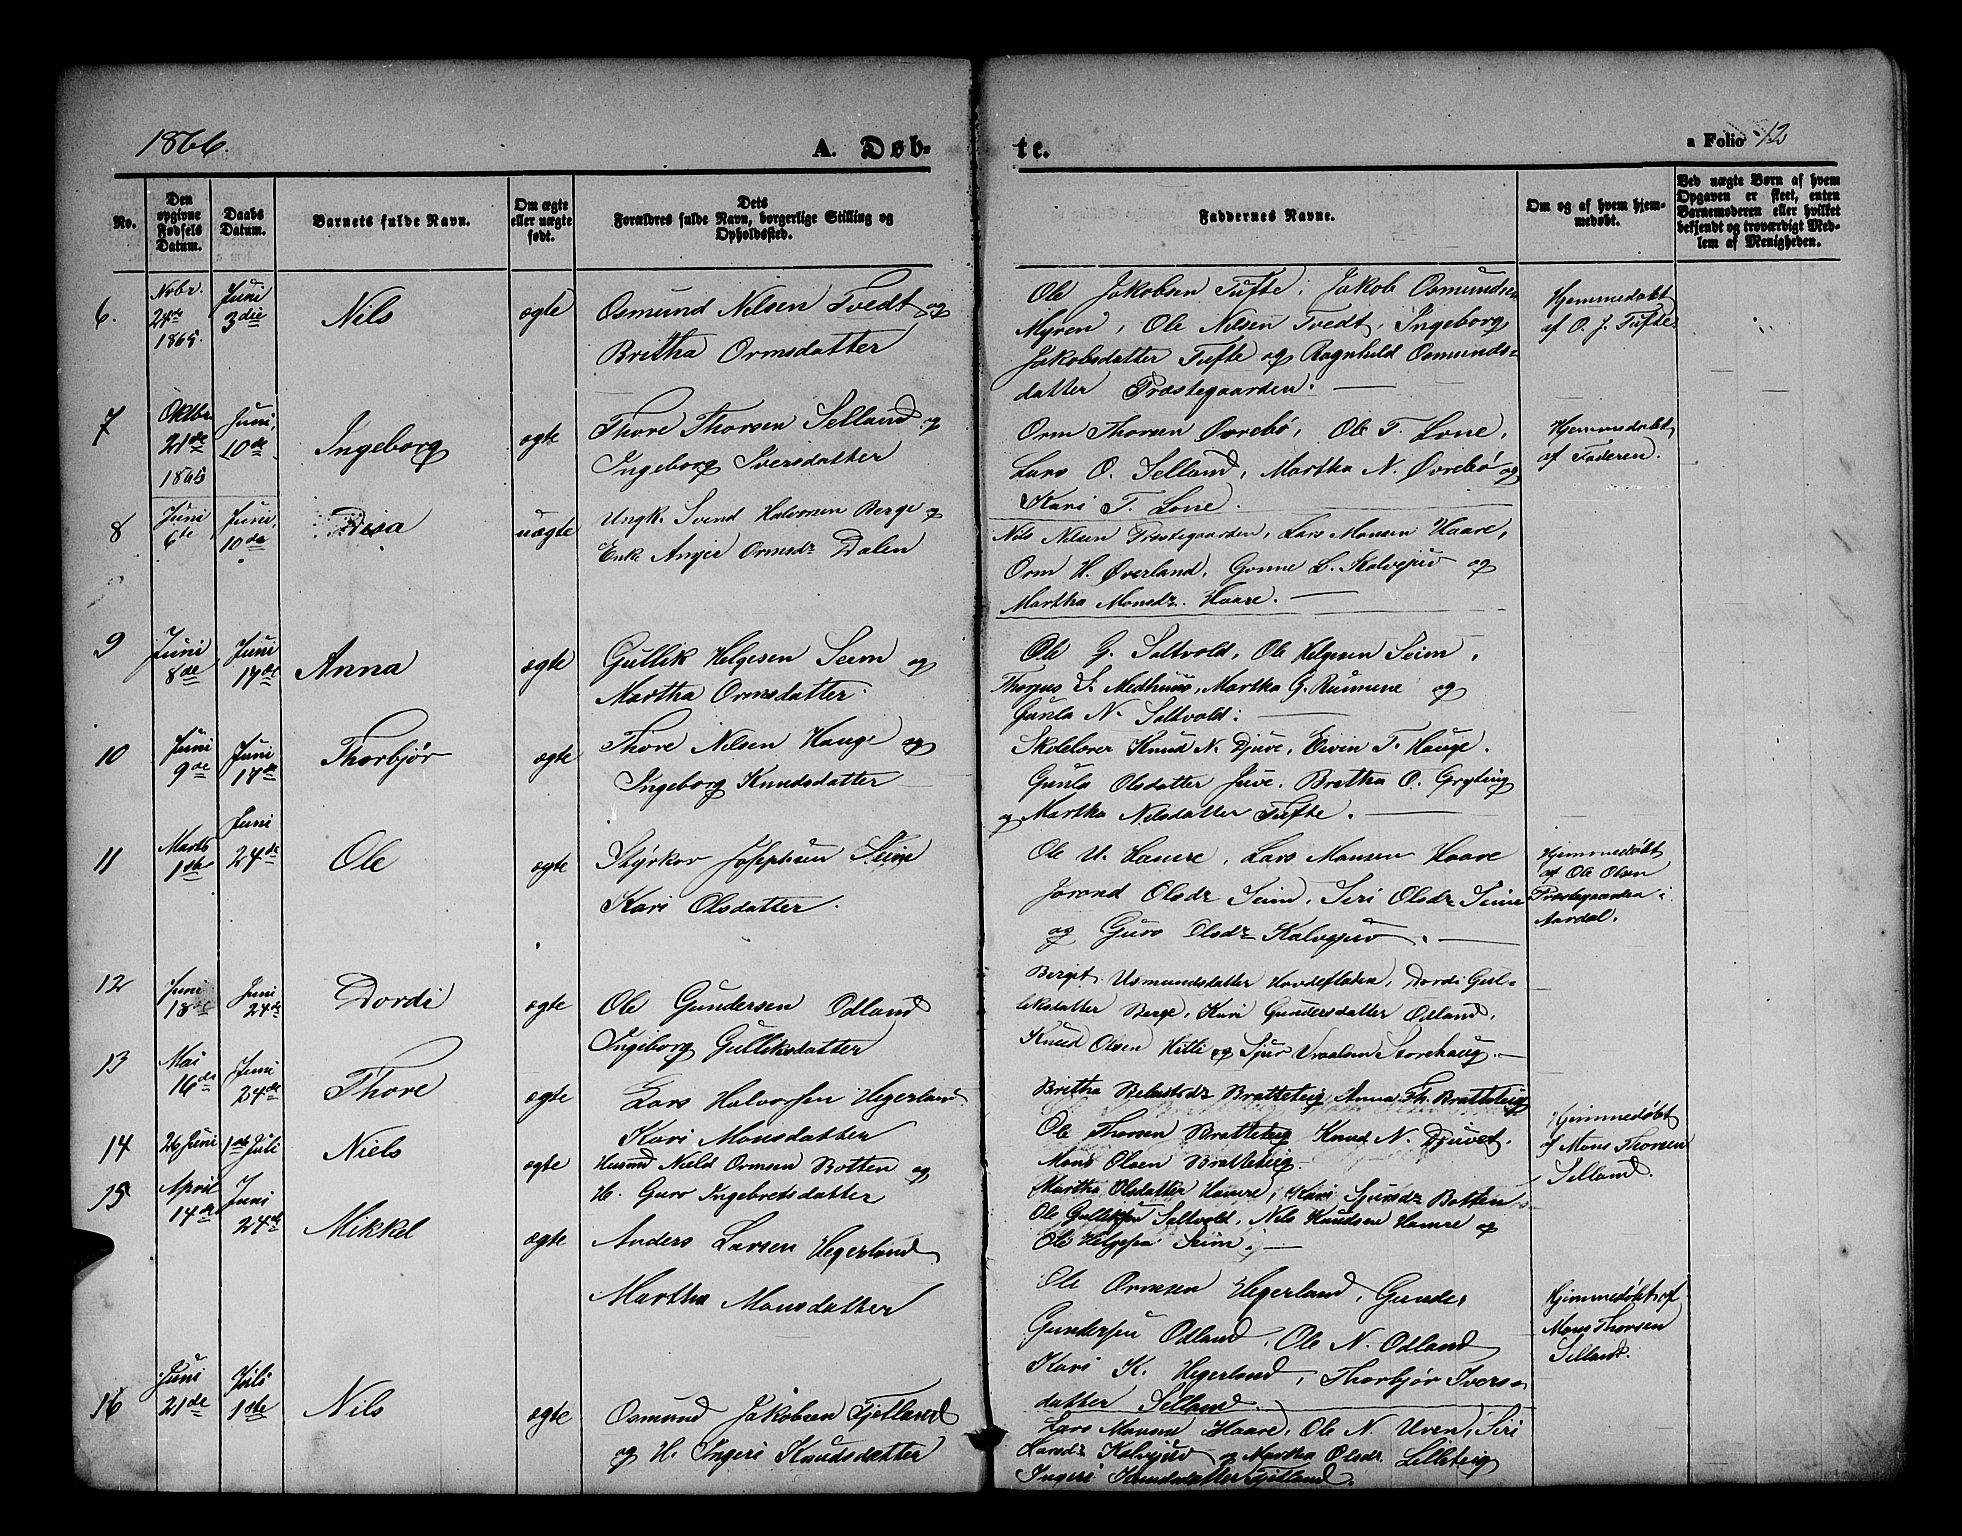 1866
A. Døb-
te.
a Folio 12
No.
Den opgivne Fødsels Datum.
Daabs Datum.
Barnets fulde Navn.
Om ægte eller uægte født.
Dets Forældres fulde Navn, borgerlige Stilling og Opholdssted.
Faddernes Navne.
Om og af hvem hjemmedøbt.
Ved uægte Børn af hvem Opgaven er skeet, enten Barnemoderen eller hvilket bekjendt og troværdigt Medlem af Menigheden.
6.
Nobr. 24de 1865
Juni 3die
Nils
ægte
Osmund Nilsen Tvedt og
Britha Ormsdatter
Ole Jakobsen Tufte, Jakob Osmundsen
Myren, Ole Nilsen Tvedt, Ingeborg
Jakobsdatter Tufte og Ragnhild Osmunds=
datter Præstegaarden.
Hjemmedøbt
af O. J. Tufte.
7
Oktbr 21de 1865
Juni, 10de
Ingeborg
ægte
Thore Thorsen Selland og
Ingeborg Iversdatter
Orm Thorsen Øvrebø, Ole T. Lone,
Lars O. Selland, Martha N. Øvrebø og
Kari T. Lone.
Hjemmedøbt
af Faderen.
8
Juni 6te
Juni, 10de
Disa
uægte
Ungk. Svend Halvorsen Berge og
Enk. Ormsdr Dalen
Nils Nilsen Præstegaarden, Lars Monsen Haare,
Orm H. Øverland, Gunne L. Kalvejuv og
Martha Monsdr. Haare.
9
Juni 8de
Juni 17de
Anna
ægte
Gullik Helgesen Seim og
Martha Ormsdatter.
Ole G. Saltvold, Ole Helgesen Seim,
Thorgus S. Medhuus, Martha G. Rumene og
Gunla N. Saltvold.
10
Juni 9de
Juni 17de
Thorbjør
ægte
Thore Nilsen Hauge og
Ingeborg Knudsdatter
Skolelærer Knud N. Djuve, Eivin T. Hauge,
Gunla Olsdatter Juve, Bretha O. Gryting
og Martha Nilsdatter Tufte.
11
Marts 1ste
Juni 24de
Ole
ægte
Styrkor Josephsen Seim
Kari Olsdatter.
Ole U. Hamre, Lars Monsen Haare
Jorond Olsdr Seim, Siri Olsdr Seim
og Guro Olsdr Kalvejuv.
Hjemmedøbt
af Ole Olsen
Præstegaarden i
Aardal.
12
Juni 18de
Juni 24de
Dordi
ægte
Ole Gundersen Odland
Ingeborg Gulliksdatter
Berget Usmundsdatter Hovdefladen, Dordi Gul-
liksdatter Berge, Kari Gundersdatter Odland,
Knud Olsen Hitli og Sjur Storehaug.
13
Mai 16de
Juni 24de
Thore
ægte
Lars Halvorsen Hegerland
Kari Monsdatter
Britha Bratteteig, Anna Th. Bratteteig
Ole Thorsen Bratteteig Knud N. Djuvet.
Mons Olsen Bratteteig.
Hjemmedøbt
af Mons Thorsen
Selland.
14
26 Juni
1ste Juli
Niels
ægte
Husmd Nield Ormsen Botten og
H. Guro Ingebretsdatter
Martha Olsdatter Hamre, Kari Sjursdr Botten
Ole Gulliksen Saltvold, Nils Knudsen Hamre og
Ole Helgesen Seim.
15
April 14de
Juni 24de
Mikkel
ægte
Anders Larsen Hegerland
Martha Monsdatter
Ole Ormsen Hegerland, Gunder
Gundersen Odland, Ole N. Odland
Kari K. Hegerland, Thorbjør Ivers=
datter Selland.
Hjemmedøbt af
Mons Thorsen
Selland.
16
Juni 21de
Juli 1ste
Nils
ægte
Osmund Jakobsen Tjetland
og H. Ingeri Knudsdatter
Lars Monsen Haare, Ole N. Uven, Siri
Larsdr Kalvejuv og Martha Olsdr Lilleteig
Ingeri Knudsdatter Tjetland.